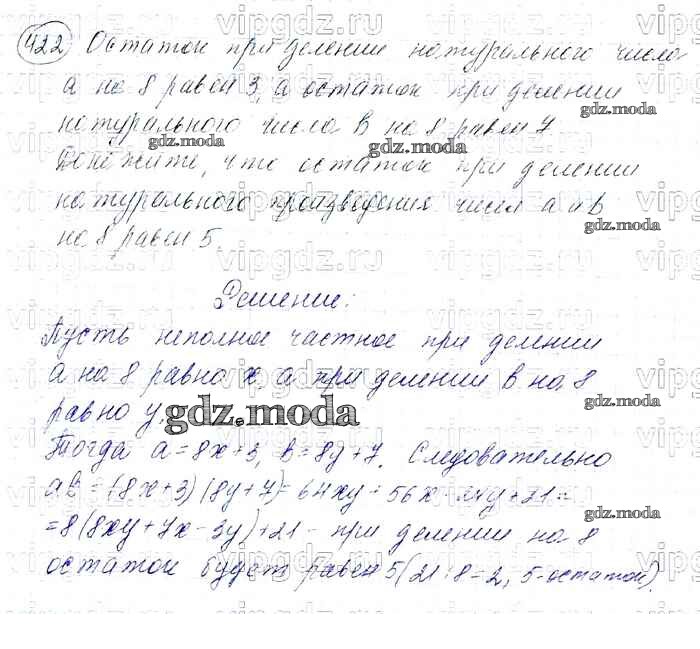 422 Остаток при делении натурального числа
а на 8 равен 3, а остаток при делении
натурального числа В на 8 равен 7.
Докажите, что остаток при делении
натурального произведения чисел а и В
на 8 равен 5.
Решение:
Пусть неполное частное при делении
а на 8 равно х, а при делении В на 8
равно у.
Тогда а=8х+3, В=8у+7. Следовательно
аВ=(8х+3)(8у+7)=64ху+56х-24у+21=
=8(8ху+7х-3у)+21- при делении на 8
остаток будет равен 5(21:8=2, 5-остаток).
vipgdz.ru
gdz.moda